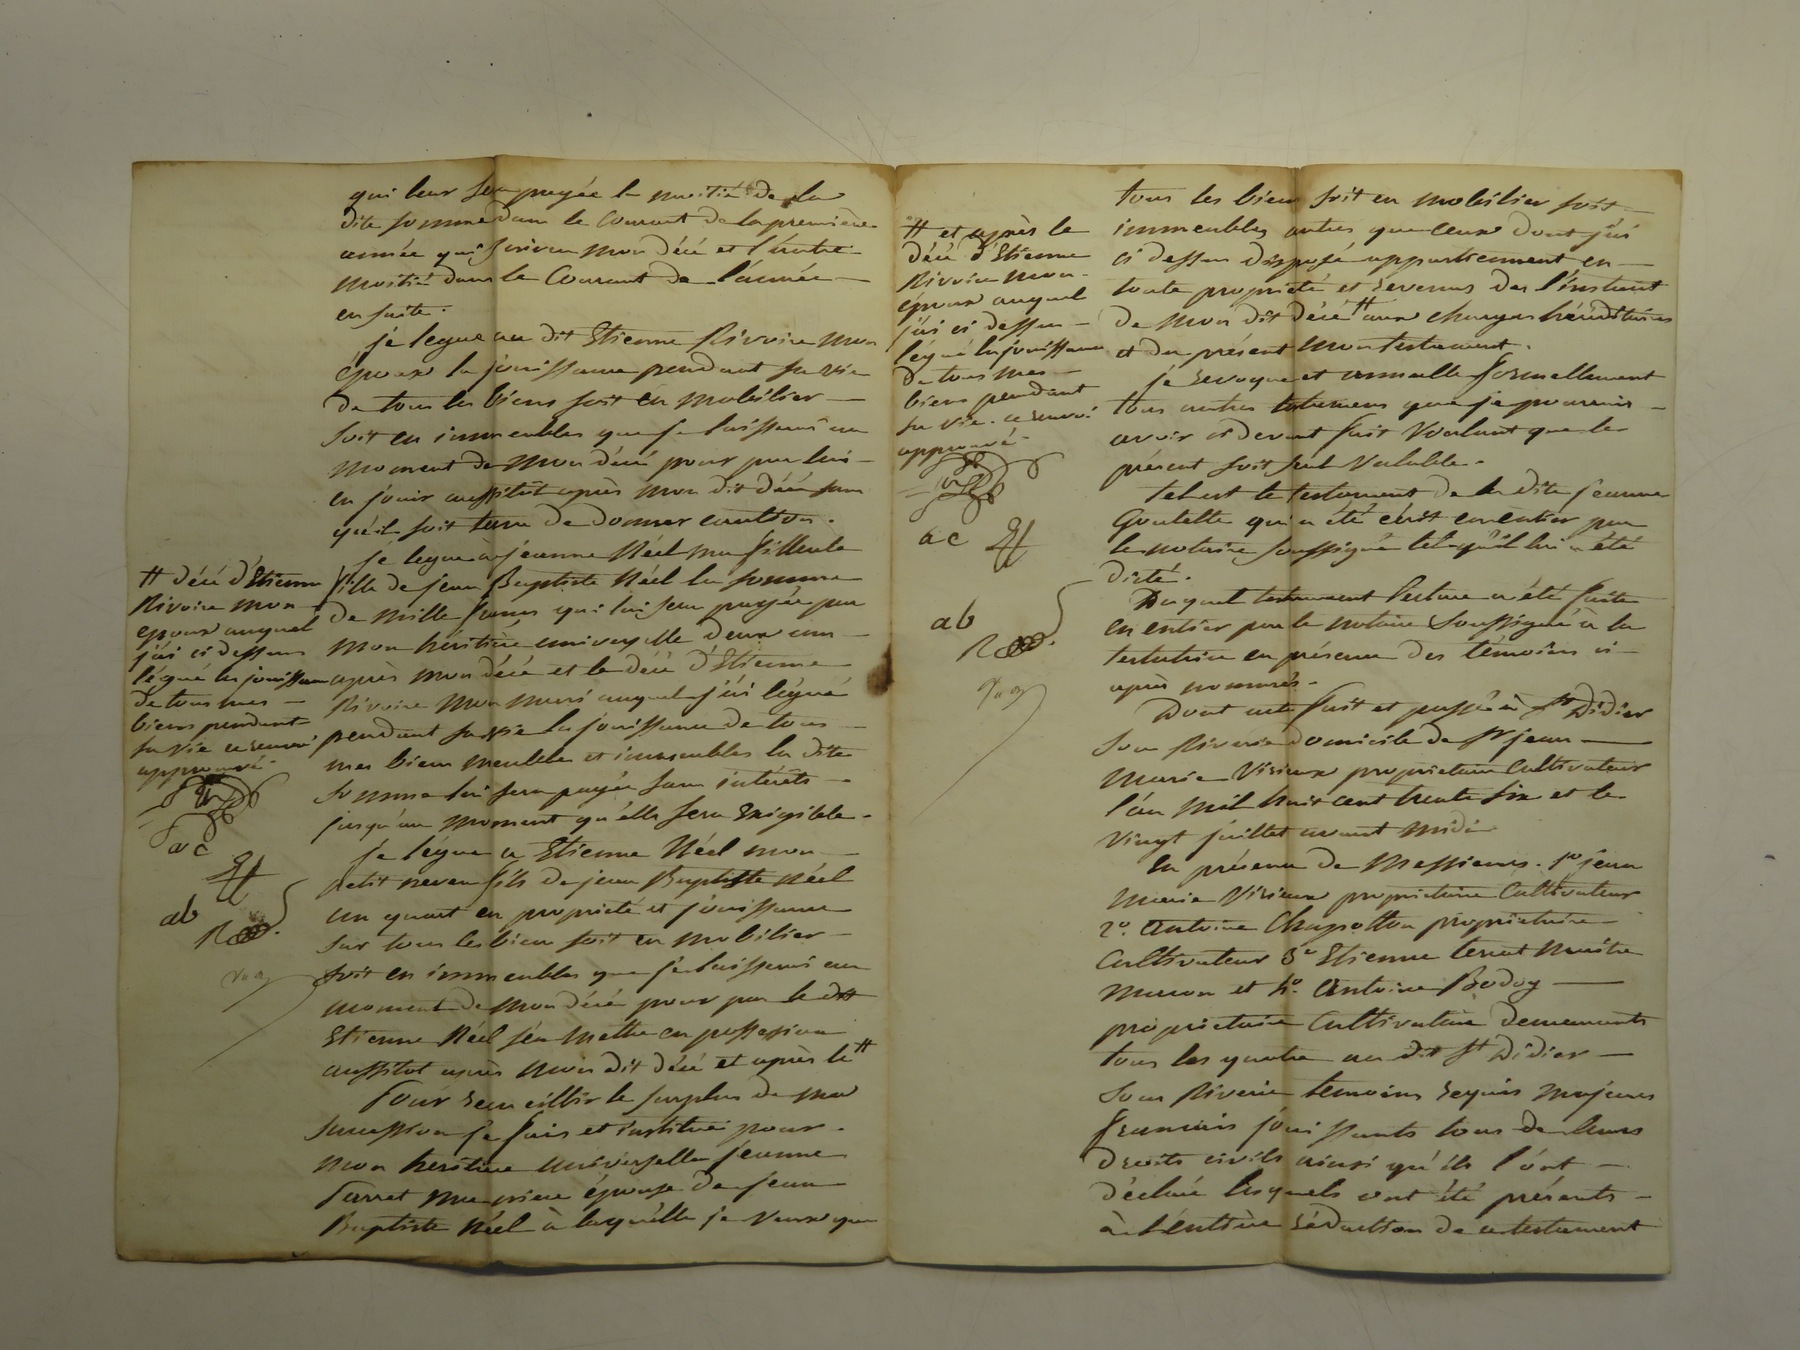 qui leur sera payée la moitié de la
dite somme dans le Courant de la première
année qui suivra mon décé et l'autre
moitié dans le Courant de l'année
en suite.
je legue au dit Etienne Rivoire mon
époux la jouissance pendant sa vie
de tous les biens soit en mobilier
soit en immeubles que je laisserai au
moment de mon décé pour par lui
en jouir aussitôt après mon dit décé sans
qu'il soit tenu de donner caution.
je legue à jeanne Réel ma filleule
fille de jean Baptiste Réel la somme
de mille francs qui lui sera payée par
mon héritière universelle deux ans
après mon décé et le décé d'Etienne
Rivoire mon mari auquel j'ai légué
pendant sa vie la jouissance de tous
mes biens meubles et immeubles la dite
somme lui sera payée sans intérêts
jusqu'au moment qu'elle sera Exigible.
je légue a Etienne Réel mon
petit neveu fils de jean Baptiste Réel
un quart en propriété et jouissance
sur tous les biens soit en mobilier
soit en immeubles que je laisserai au
moment de mon décé pour par le dit
Etienne Réel s'en mettre en possession
aussitot après mon dit décé et après le #
Pour recueillir le surplus de ma
succession je fais et institue pour
mon héritière universelle jeanne
Parret ma niece épouse de jean
Baptiste Réel à laquelle je veux que
# décé d'Etienne
Rivoire mon
epoux auquel
j'ai ci dessus
légué la jouissance
de tous mes
biens pendant
sa vie ce renvoi
approuvé.
ac
ab
tous les biens soit en mobilier soit
immeubles autres que ceux dont j'ai
ci dessus disposé appartiennent en
toute propriété et revenus des l'instant
de mon dit décé # aux charges héréditaires
et du présent mon testament.
je revoque et annulle formellement
tous autres testamens que je pourrais
avoir ci devant fait voulant que le
présent soit seul valable.
Tel est le testament de la dite jeanne
Goutelle qui a été écrit en entier par
le notaire soussigné tel qu'il lui a été
dicté.
Duquel testament lecture a été faite
en entier par le notaire soussigné à la
testatrice en présence des témoins ci
après nommés.
Dont acte fait et passé à St Didier
sous Riverie domicile de Sr jean
Marie Virieux propriétaire Cultivateur
l'an mil huit cent trente six et le
vingt juillet avant midi
En présence de Messieurs. 1o jean
Marie Virieux propriétaire Cultivateur
2o. Antoine Chapotton propriétaire
Cultivateur 3o Etienne Ferret Maître
Maçon et 4o. Antoine Bodoy
propriétaire Cultivateur demeurants
tous les quatre au dit St Didier
sous Riverie temoins requis majeurs
francais jouissants tous de leurs
droits civils ainsi qu'ils l'ont
déclaré lesquels ont été présents
à l'entière rédaction de ce testament
# et après le
décé d'Etienne
Rivoire mon
époux auquel
j'ai ci dessus
légué la jouissance
de tous mes
biens pendant
sa vie. ce renvoi
approuvé.
ac
ab